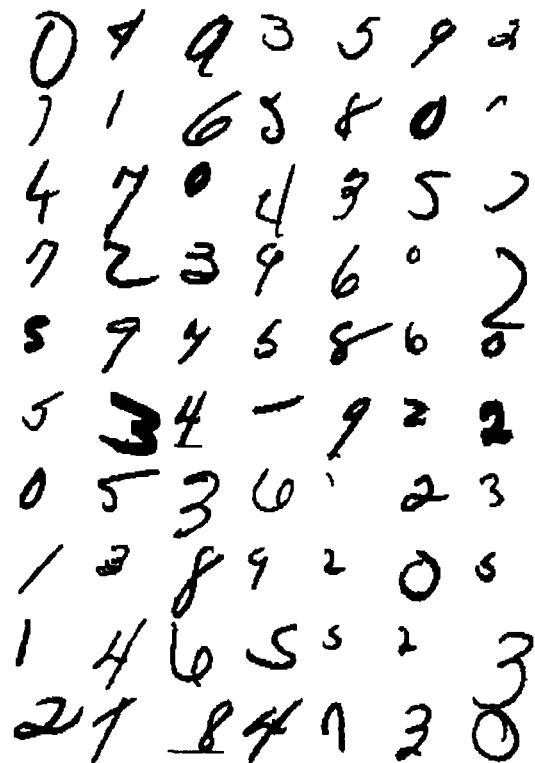 0 9 9 3 5 9 2
7 1 6 5 8 0
4 7 0 4 3 5 7
7 2 3 9 6 0 2
5 9 4 5 8 6 0
5 3 4 9 2 2
0 5 3 6 2 3
1 3 8 9 2 0 5
1 4 6 5 5 2 3
2 7 8 4 7 3 0